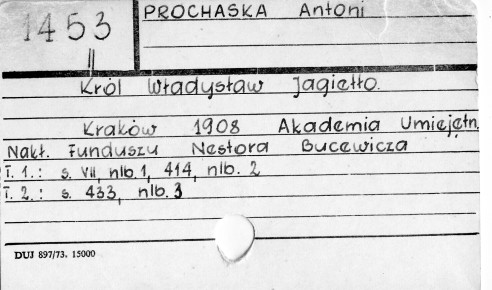 1453
PROCHASKA Antoni
Król Władysław Jagiełło.
Kraków 1908 Akademia Umiejętn.
Nakł. Funduszu Nestora Bucewicza
T. 1.: s. VII, nlb. 1, 414, nlb. 2
T. 2.: s. 433, nlb. 3
DUJ 897/73. 15000